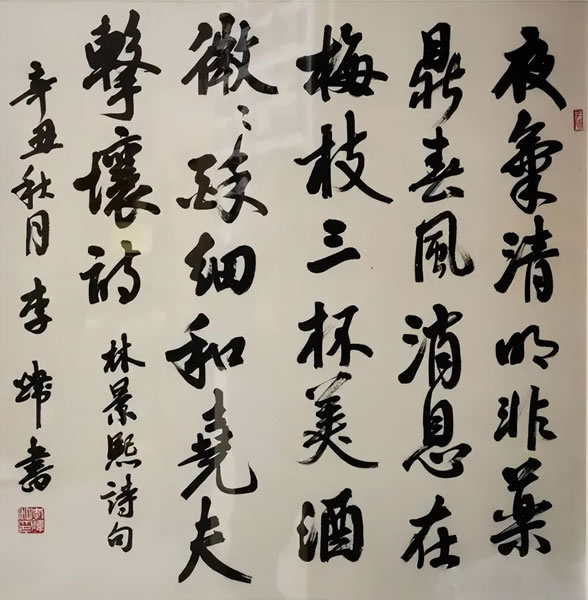 夜氣清明非藥
鼎春風消息在
梅枝三杯美酒
微〻醉細和堯夫
擊壤詩 林景熙詩句
辛丑秋月 李煒書